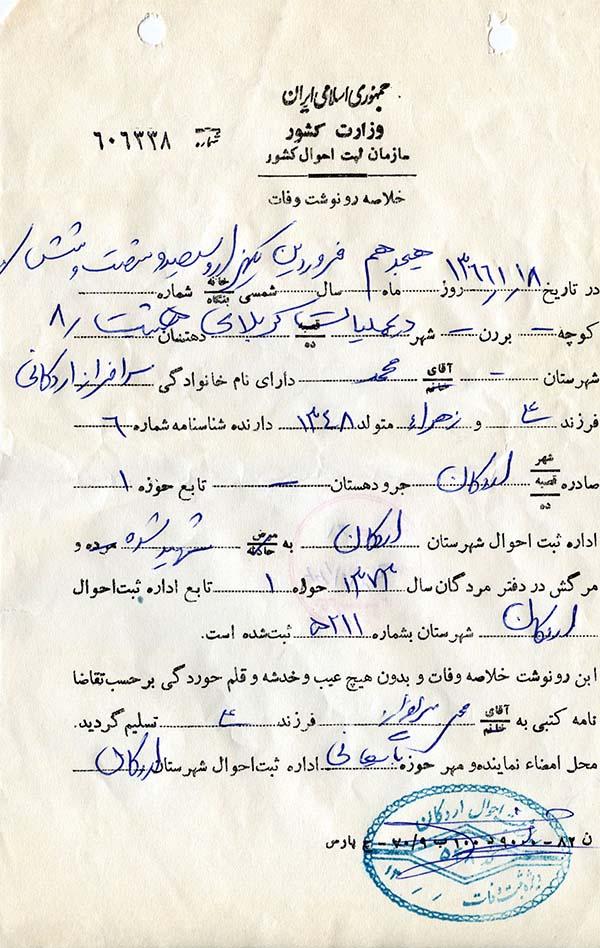 جمهوری اسلامی ایران
وزارت کشور
سازمان ثبت احوال کشور
شماره ٦٠٦٣٣٨
خلاصه رونوشت وفات
هیجدهم فروردین یکهزار و سیصد و شصت و شش
در تاریخ ۱۳۶۶/۱/۱۸ روز ماه سال شمسی خانه بنگاه شماره
کوچه – برزن – شهر در عملیات کربلای هشت ۸ قصبه ده دهستان
شهرستان – آقای خانم محمد دارای نام خانوادگی سرافراز اردکانی
فرزند و زهراء متولد ۱۳۴۸ دارنده شناسنامه شماره ۶
صادره شهر قصبه ده اردکان جزو دهستان – تابع حوزه ۱
اداره ثبت احوال شهرستان اردکان به مرض حادثه شهید شده مرده و
مرگش در دفتر مردگان سال ۱۳۷۳ حوزه ۱ تابع اداره ثبت احوال
اردکان شهرستان بشماره ۵۲۱۱ ثبت شده است.
این رونوشت خلاصه وفات و بدون هیچ عیب و خدشه و قلم خوردگی بر حسب تقاضا
نامه کتبی به آقای خانم فرزند تسلیم گردید.
محل امضاء نماینده و مهر حوزه اداره ثبت احوال شهرستان اردکان
ثبت احوال اردکان
ویژه ثبت وفات